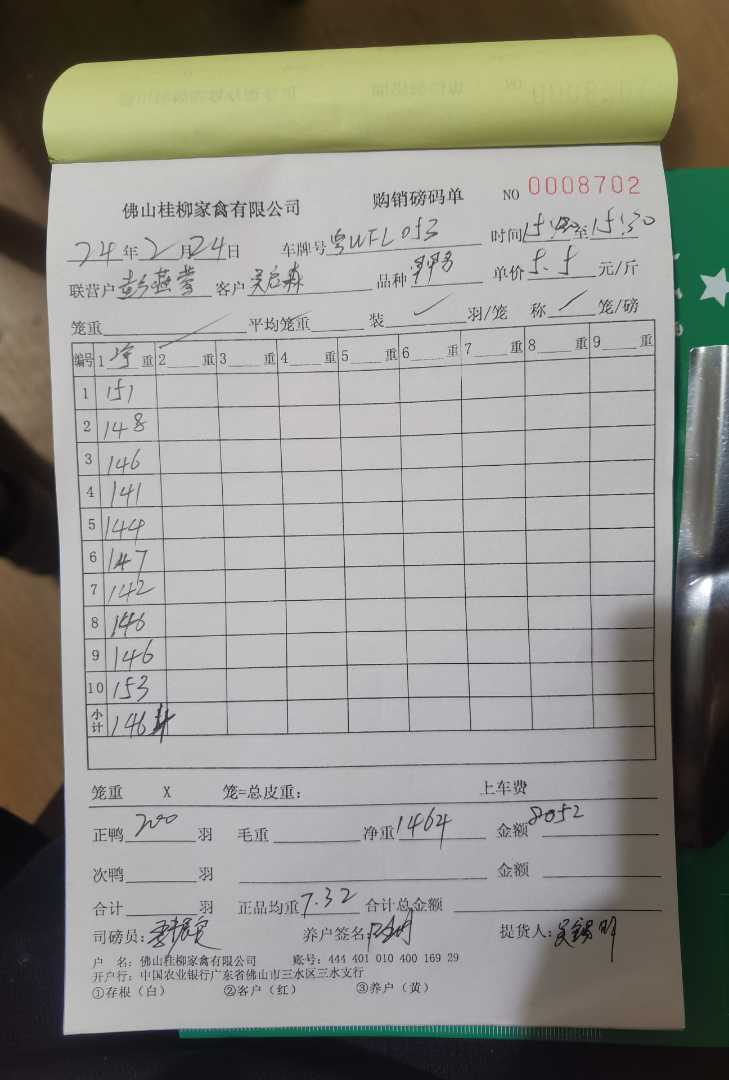 佛山桂柳家禽有限公司 购销磅码单 NO 0008702
24年2月24日 车牌号粤WFL053 时间 至15:30
联营户彭燕 客户吴启森 品种 单价5.5元/斤
笼重 平均笼重 装 羽/笼 称 笼/磅
编号 1净重 2 重 3 重 4 重 5 重 6 重 7 重 8 重 9 重
1 151
2 148
3 146
4 141
5 144
6 147
7 142
8 146
9 146
10 153
小计 1464
笼重 X 笼=总皮重: 上车费
正鸭200羽 毛重 净重1464 金额8052
次鸭 羽 金额
合计 羽 正品均重7.32 合计总金额
司磅员: 养户签名 提货人:吴锦明
户 名: 佛山桂柳家禽有限公司 账号: 444 401 010 400 169 29
开户行: 中国农业银行广东省佛山市三水区三水支行
①存根(白) ②客户(红) ③养户(黄)